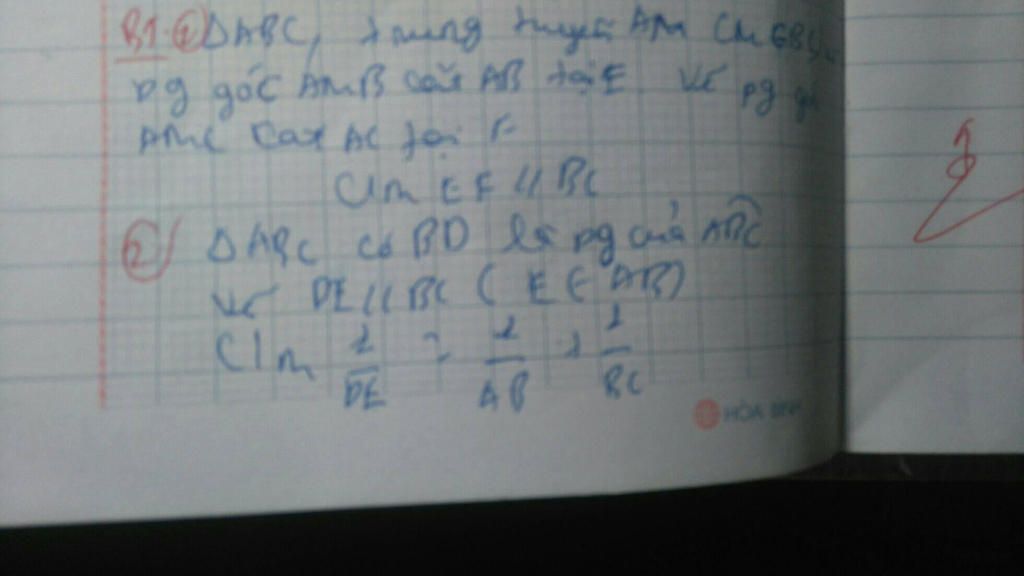 B1. 1 ΔABC, trung tuyến AM
pg góc AMB cắt AB tại E Vẽ pg
AMC cắt AC tại F
C/m EF // BC
2/ ΔABC có BD là pg của ABC
Vẽ DE // BC ( E ∈ AB)
C/m 1/DE = 1/AB + 1/BC
HÒA BÌNH